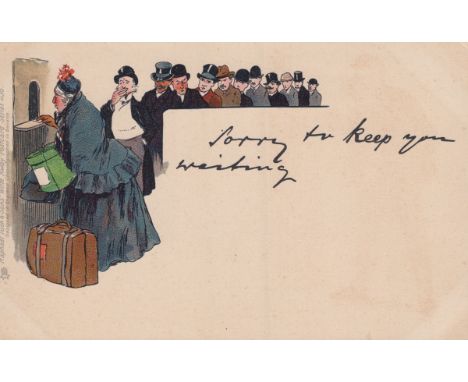 Sorry to keep you
waiting